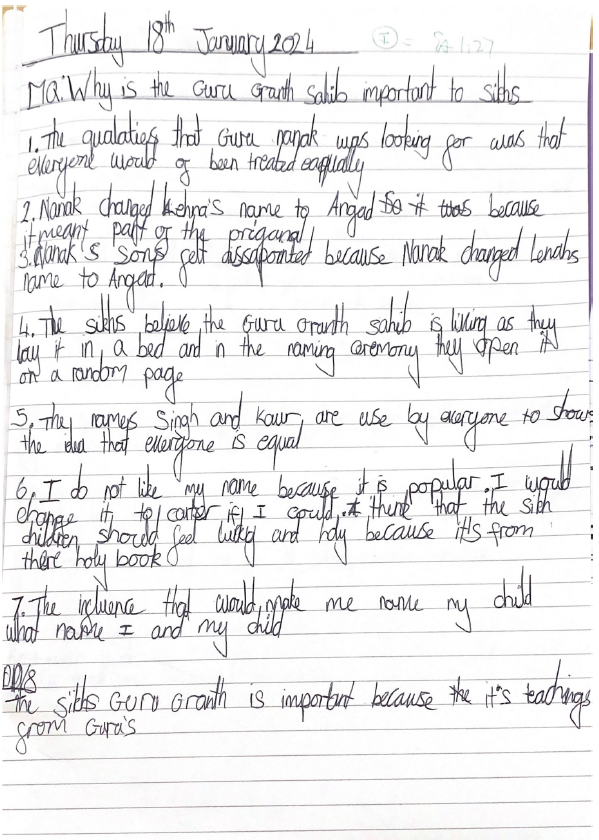 Thursday 18th January 2024
MQ: Why is the Guru Granth Sahib important to sikhs
1. The qualaties that Guru nanak was looking for was that
everyone would of been treated eaqually
2. Nanak changed Lehna's name to Angad so it was because
it meant part of the origanal
3. Nanak's sons felt dissapointed because Nanak changed Lenahs
name to Angad.
4. The sikhs believe the Guru Granth sahib is living as they
lay it in a bed and in the naming ceremony they open it
on a random page
5. They names Singh and Kaur, are use by everyone to shows
the idea that everyone is equal
6. I do not like my name because it is popular. I would
change it to carter if I could. I think that the sikh
children should feel lucky and holy because it's from
there holy book
7. The influence that would make me name my child
what name I and my child
DD/8
The sikhs Guru Granth is important because the it's teachings
from Gura's